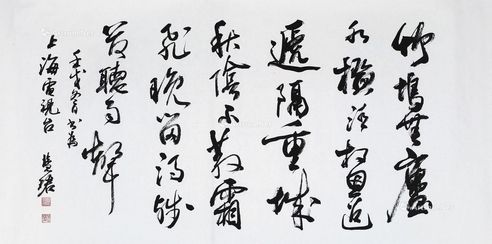 竹塢無塵
水檻清相思迢
遞隔重城
秋陰不散霜
飛晚留得殘
荷聽雨聲
壬戌冬月書為
上海電視台 慧珺